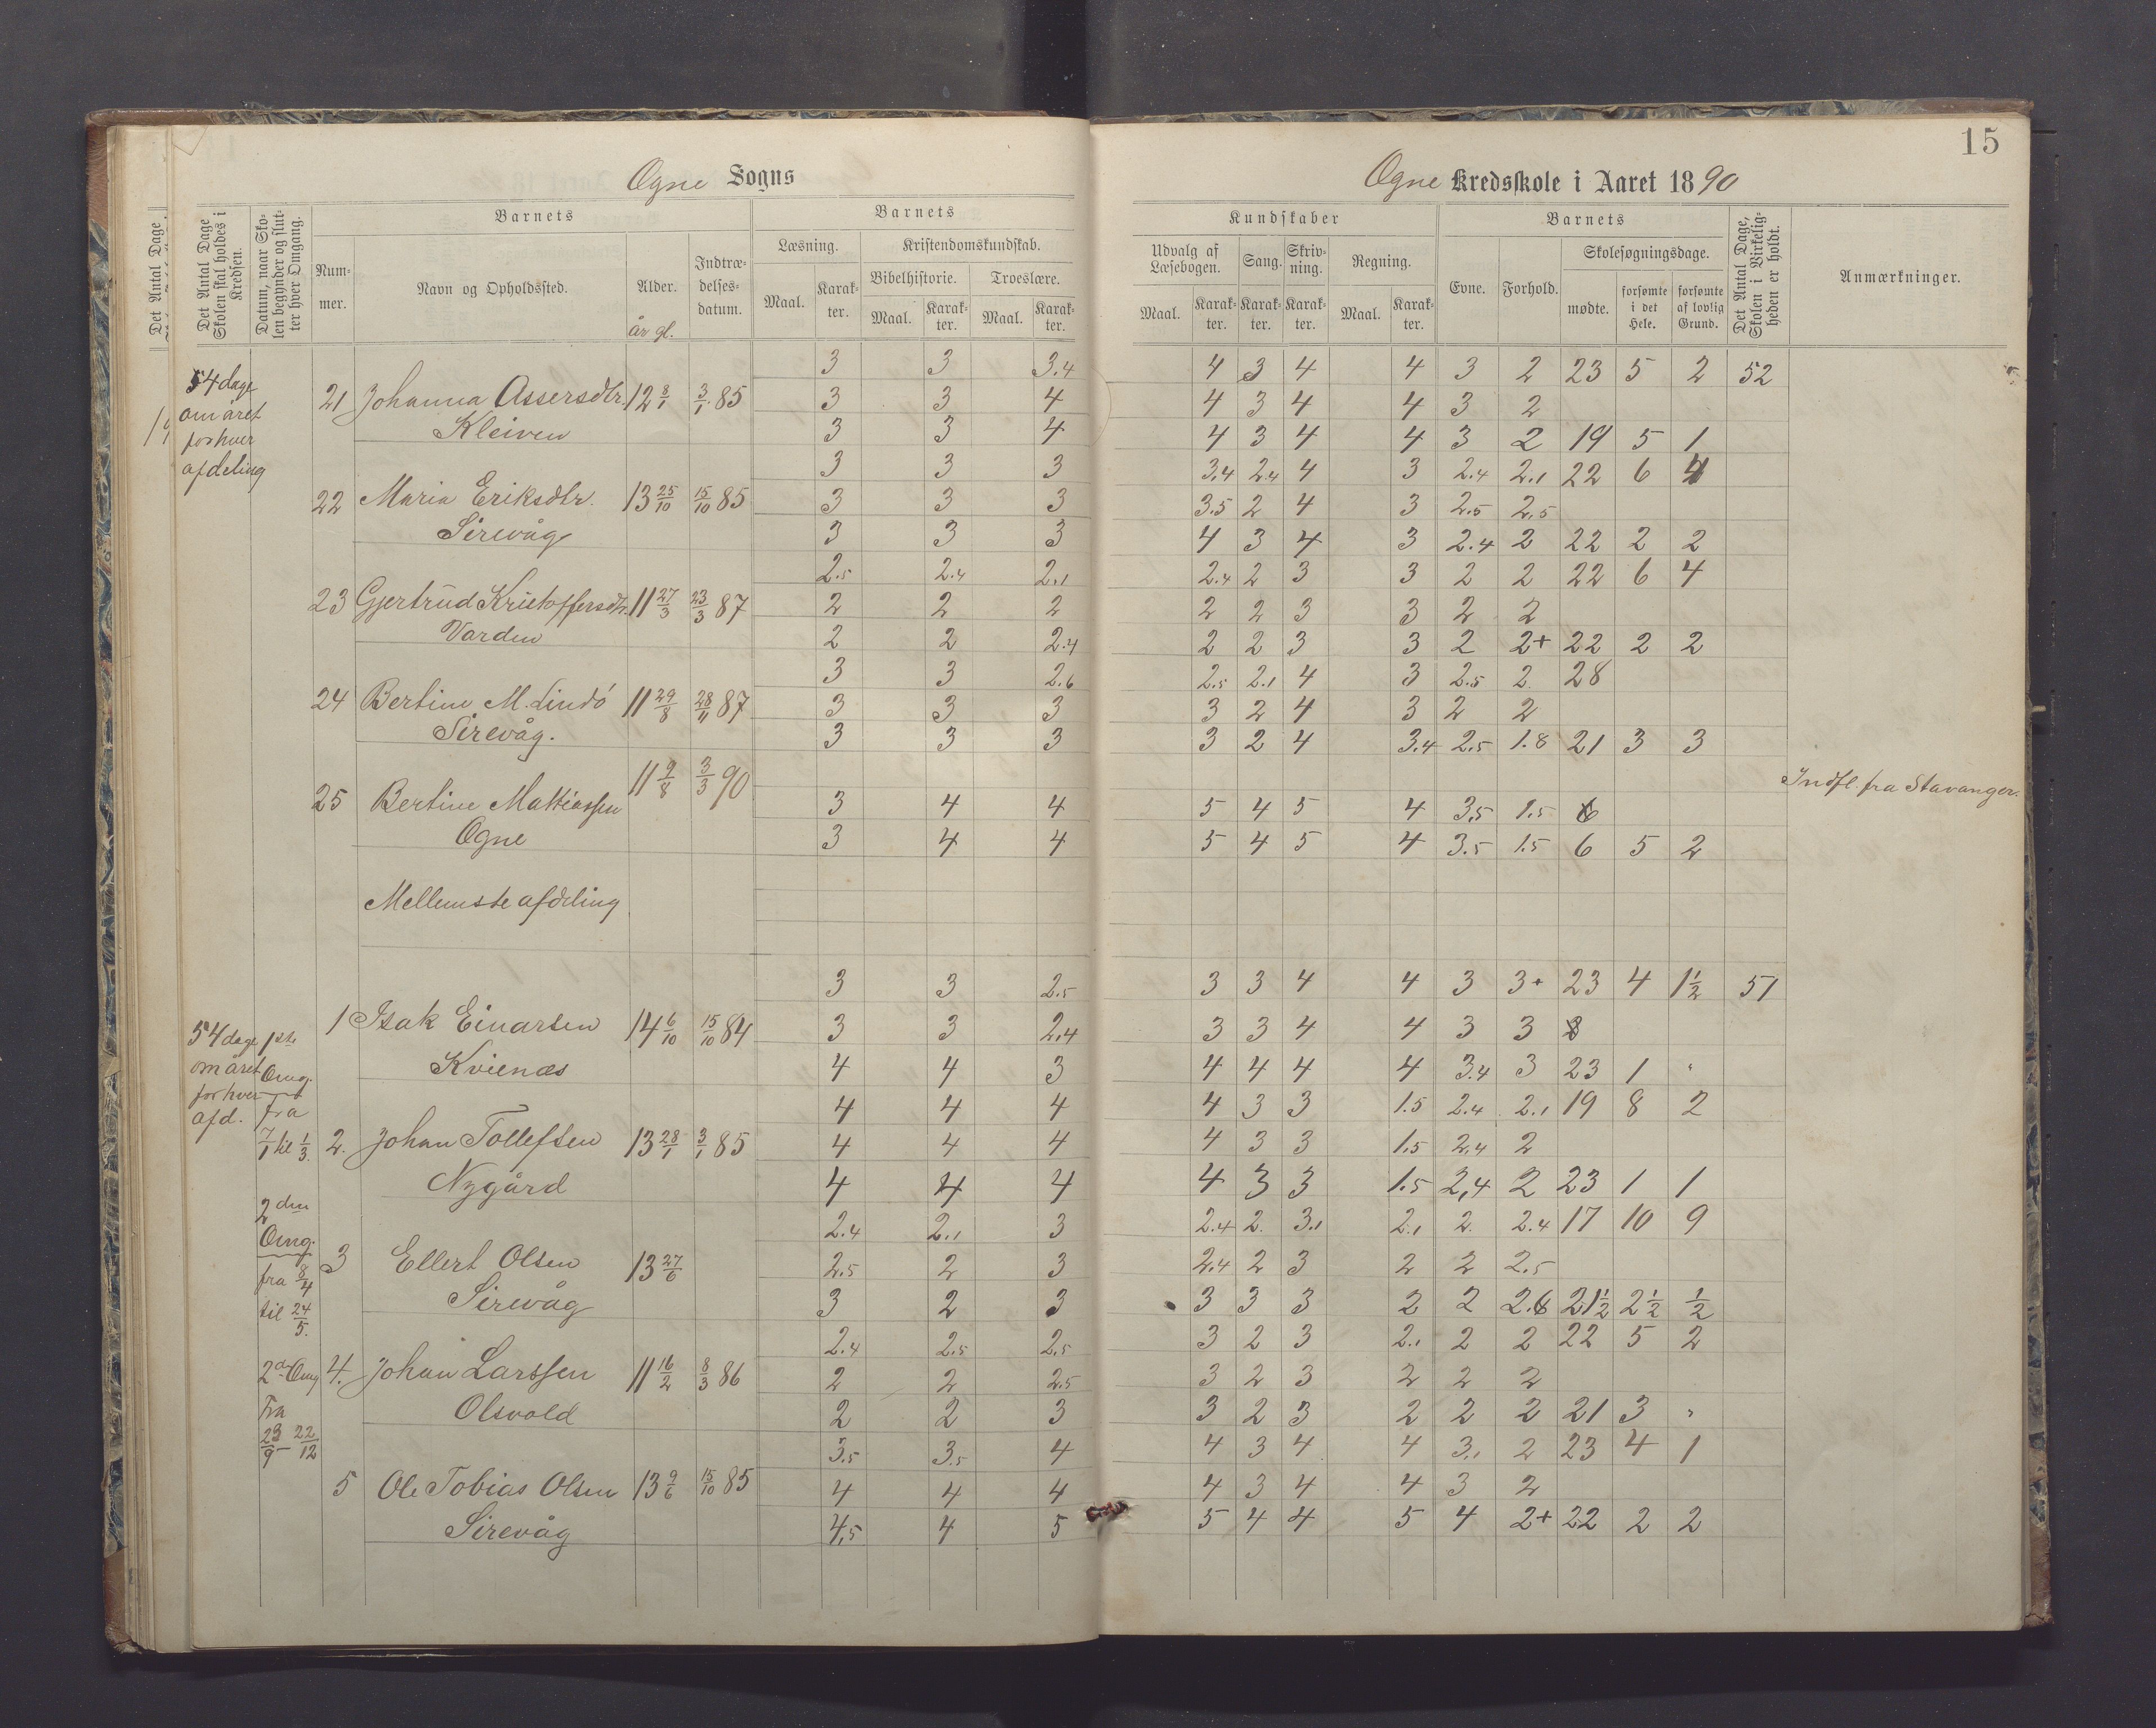 Ogne Sogns
Det Antal Dage
Det Antal Dage Skolen skal holdes i Kredsen.
Datum, naar Skolen begynder og slutter hver Omgang.
Barnets
Nummer.
Navn og Opholdssted.
Alder.
år gl.
Indtrædelsesdatum.
Barnets
Læsning.
Kristendomskundskab.
Bibelhistorie.
Troeslære.
Maal. Karakter. Maal. Karakter. Maal. Karakter.
3 3 3.4
54 dage 21 Johanna Assersdtr. 12 8/1 3/1 85 3 3 4
om året Kleiven 3 3 4
for hver
afdeling 3 3 3
22 Maria Eriksdtr. 13 25/10 15/10 85 3 3 3
Sirevåg 3 3 3
2.5 2.4 2.1
23 Gjertrud Kristoffersdtr. 11 27/3 23/3 87 2 2 2
Varden 2 2 2.4
3 3 2.6
24 Bertine M. Lindö 11 29/8 28/11 87 3 3 3
Sirevåg. 3 3 3
11 9/8 3/3 90
25 Bertine Mattiassen 3 4 4
Ogne 3 4 4
Mellemste afdeling
3 3 2.5
1 Isak Einarsen 14 6/10 15/10 84 3 3 2.4
54 dage 1ste
om året Omg. Kvienæs 4 4 3
for hver fra 4 4 4
afd.
7/1 til 1/3. 2. Johan Tollefsen 13 28/1 3/1 85 4 4 4
Nygård 4 4 4
2den 2.4 2.1 3
Omg.
3 Ellert Olsen 13 27/6 2.5 2 3
fra 8/4 Sirevåg 3 2 3
til 24/5. 2.4 2.5 2.5
2d Omg 4. Johan Larssen 11 16/2 8/3 86 2 2 2.5
Fra Olsvold 2 2 3
23/9 – 22/12 3.5 3.5 4
5 Ole Tobias Olsen 13 9/6 15/10 85 4 4 4
Sirevåg 4,5 4 5
15
Ogne Kredsskole i Aaret 1890
Kundskaber
Udvalg af Læsebogen.
Sang.
Skrivning.
Regning.
Maal. Karakter. Karakter. Karakter. Maal. Karakter.
Barnets
Evne. Forhold.
Skolesøgningsdage.
mødte. forsømte i det Hele. forsømte af lovlig Grund.
Det Antal Dage, Skolen i Virkeligheden er holdt.
Anmærkninger.
4 3 4 4 3 2 23 5 2 52
4 3 4 4 3 2
4 3 4 4 3 2 19 5 1
3.4 2.4 4 3 2.4 2.1 22 6 4
3.5 2 4 3 2.5 2.5
4 3 4 3 2.4 2 22 2 2
2.4 2 3 3 2 2 22 6 4
2 2 3 3 2 2
2 2 3 3 2 2+ 22 2 2
2.5 2.1 4 3 2.5 2. 28
3 2 4 3 2 2
3 2 4 3.4 2.5 1.8 21 3 3
Indfl. fra Stavanger.
5 4 5 4 3.5 1.5
5 4 5 4 3.5 1.5 6 5 2
3 3 4 4 3 3+ 23 4 1½ 51
3 3 4 4 3 3
4 4 4 4 3.4 3 23 1 "
4 3 3 1.5 2.4 2.1 19 8 2
4 3 3 1.5 2.4 2
4 3 3 1.5 2,4 2 23 1 1
2.4 2. 3.1 2.1 2. 2.4 17 10 9
2.4 2 3 2 2 2.5
3 3 3 2 2 2.8 21½ 2½ ½
3 2 3 2.1 2 2 22 5 2
3 2 3 2 2 2
3 2 3 2 2 2 21 3 "
4 3 4 4 3.1 2 23 4 1
4 3 4 4 3 2
5 4 4 5 4 2+ 22 2 2